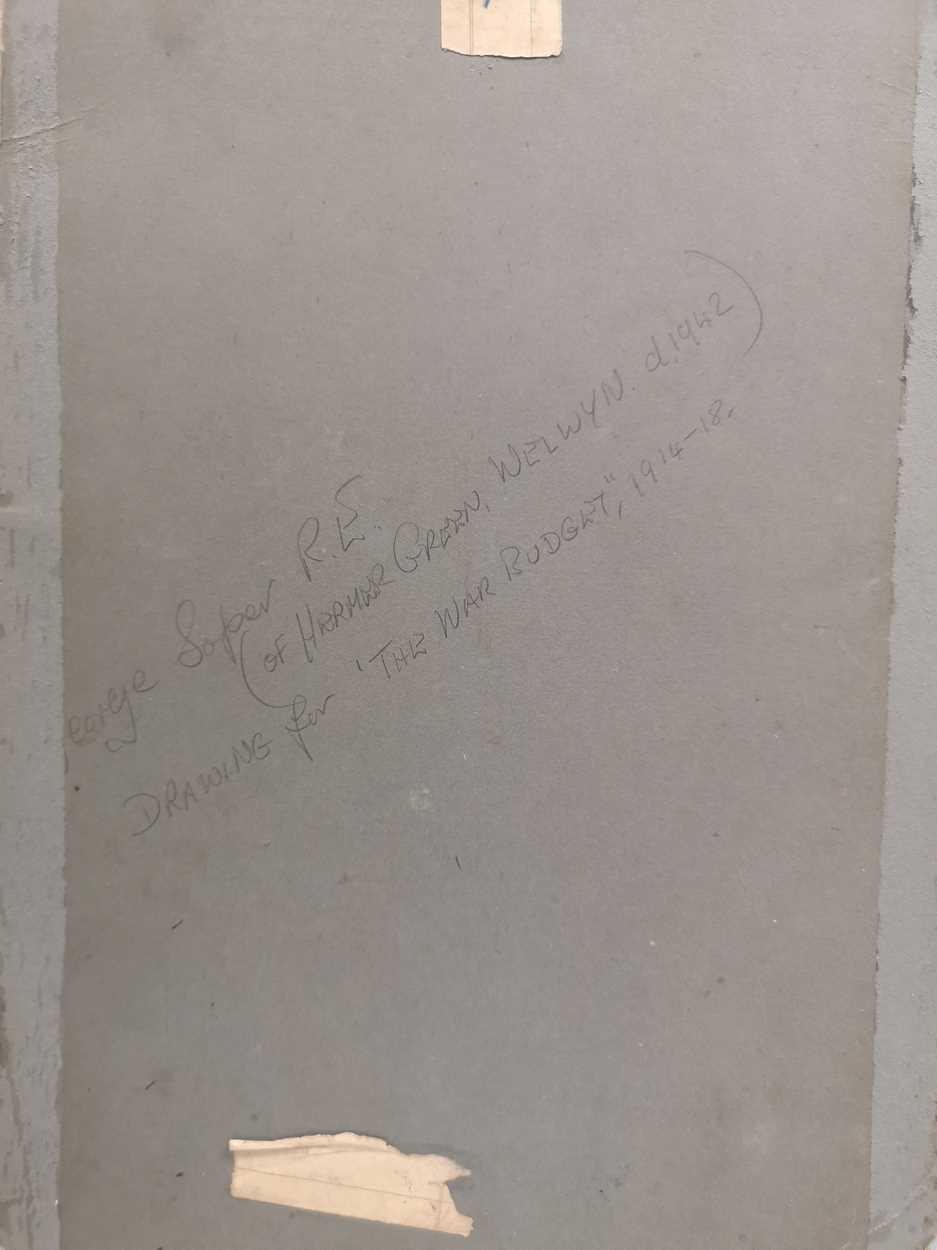 George Soper R.E.
(OF HARMER GREEN, WELWYN. d.1942)
DRAWING for 'THE WAR BUDGET", 1914-18.